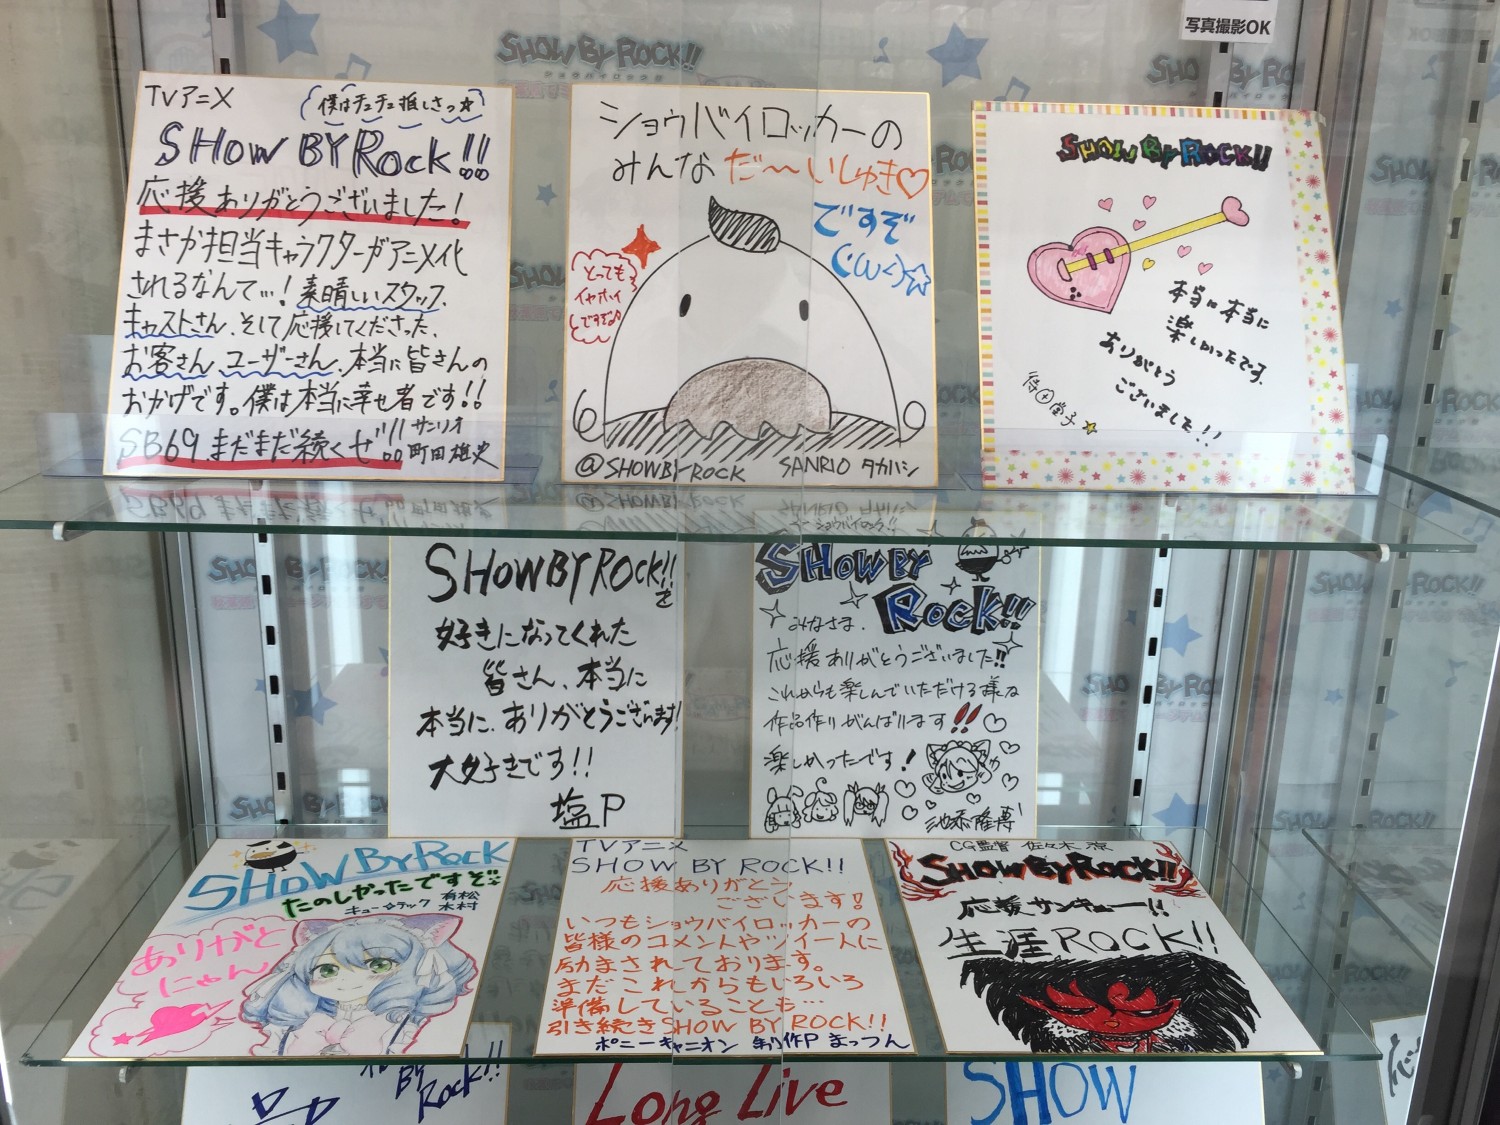 写真撮影OK
SHOW BY ROCK!!
TVアニメ
僕はチュチュ推しさっ☆
SHOW BY ROCK!!
応援ありがとうございました!
まさか担当キャラクターがアニメ化
されるなんて…!素晴しいスタッフ、
キャストさん、そして応援してくださった、
お客さん、ユーザーさん、本当に皆さんの
おかげです。僕は本当に幸せ者です!!
SB69、まだまだ続くぜ!!!
サンリオ
町田雄史
ショウバイロッカーの
みんなだ〜いしゅき♡
ですぞ
とっても
イヤホイ
ですぞ♪
@SHOWBYROCK SANRIO タカハシ
SHOW BY ROCK!!
本当に本当に
楽しかったです、
ありがとう
ございました!!
SHOWBYROCK!!を
好きになってくれた
皆さん、本当に
本当に、ありがとうございます!
大好きです!!
塩P
ショウバイロック!!
SHOW BY
ROCK!!
みなさま、
応援ありがとうございました!!
これからも楽しんでいただける様な
作品作りがんばります!!♡
楽しかったです!
池添隆博
SHOW BY ROCK
たのしかったですぞ
キュー☆テック 有松
木村
ありがと
にゃん
TVアニメ
SHOW BY ROCK!!
応援ありがとう
ございます!!
いつもショウバイロッカーの
皆様のコメントやツイートに
励まされております。
まだこれからもいろいろ
準備していることも…
引き続きSHOW BY ROCK!!
ポニーキャニオン 制作P まっつん
CG監督 佐々木 涼
SHOW BY ROCK!!
応援サンキュー!!
生涯ROCK!!
BY
ROCK!!
LONG LIVE
SHOW